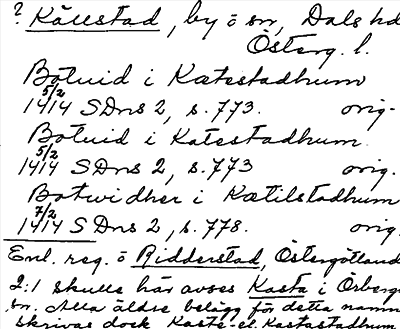 ? Källstad, by o sn, Dals hd
Österg. l.
Botuid i Kætestadhum
5/2
1414 SDns 2, s. 773. orig.
Botuid i Katestadhum
5/2
1414 SDns 2, s. 773 orig.
Botwidher i Kætilstadhum
7/2
1414 SDns 2, s. 778. orig.
Enl. reg. ö Ridderstad, Östergötland
2:1 skulle här avses Kasta i Örberga
sn. Alla äldre belägg för detta namn
skrivas dock Kaste- el. Kastastadhum